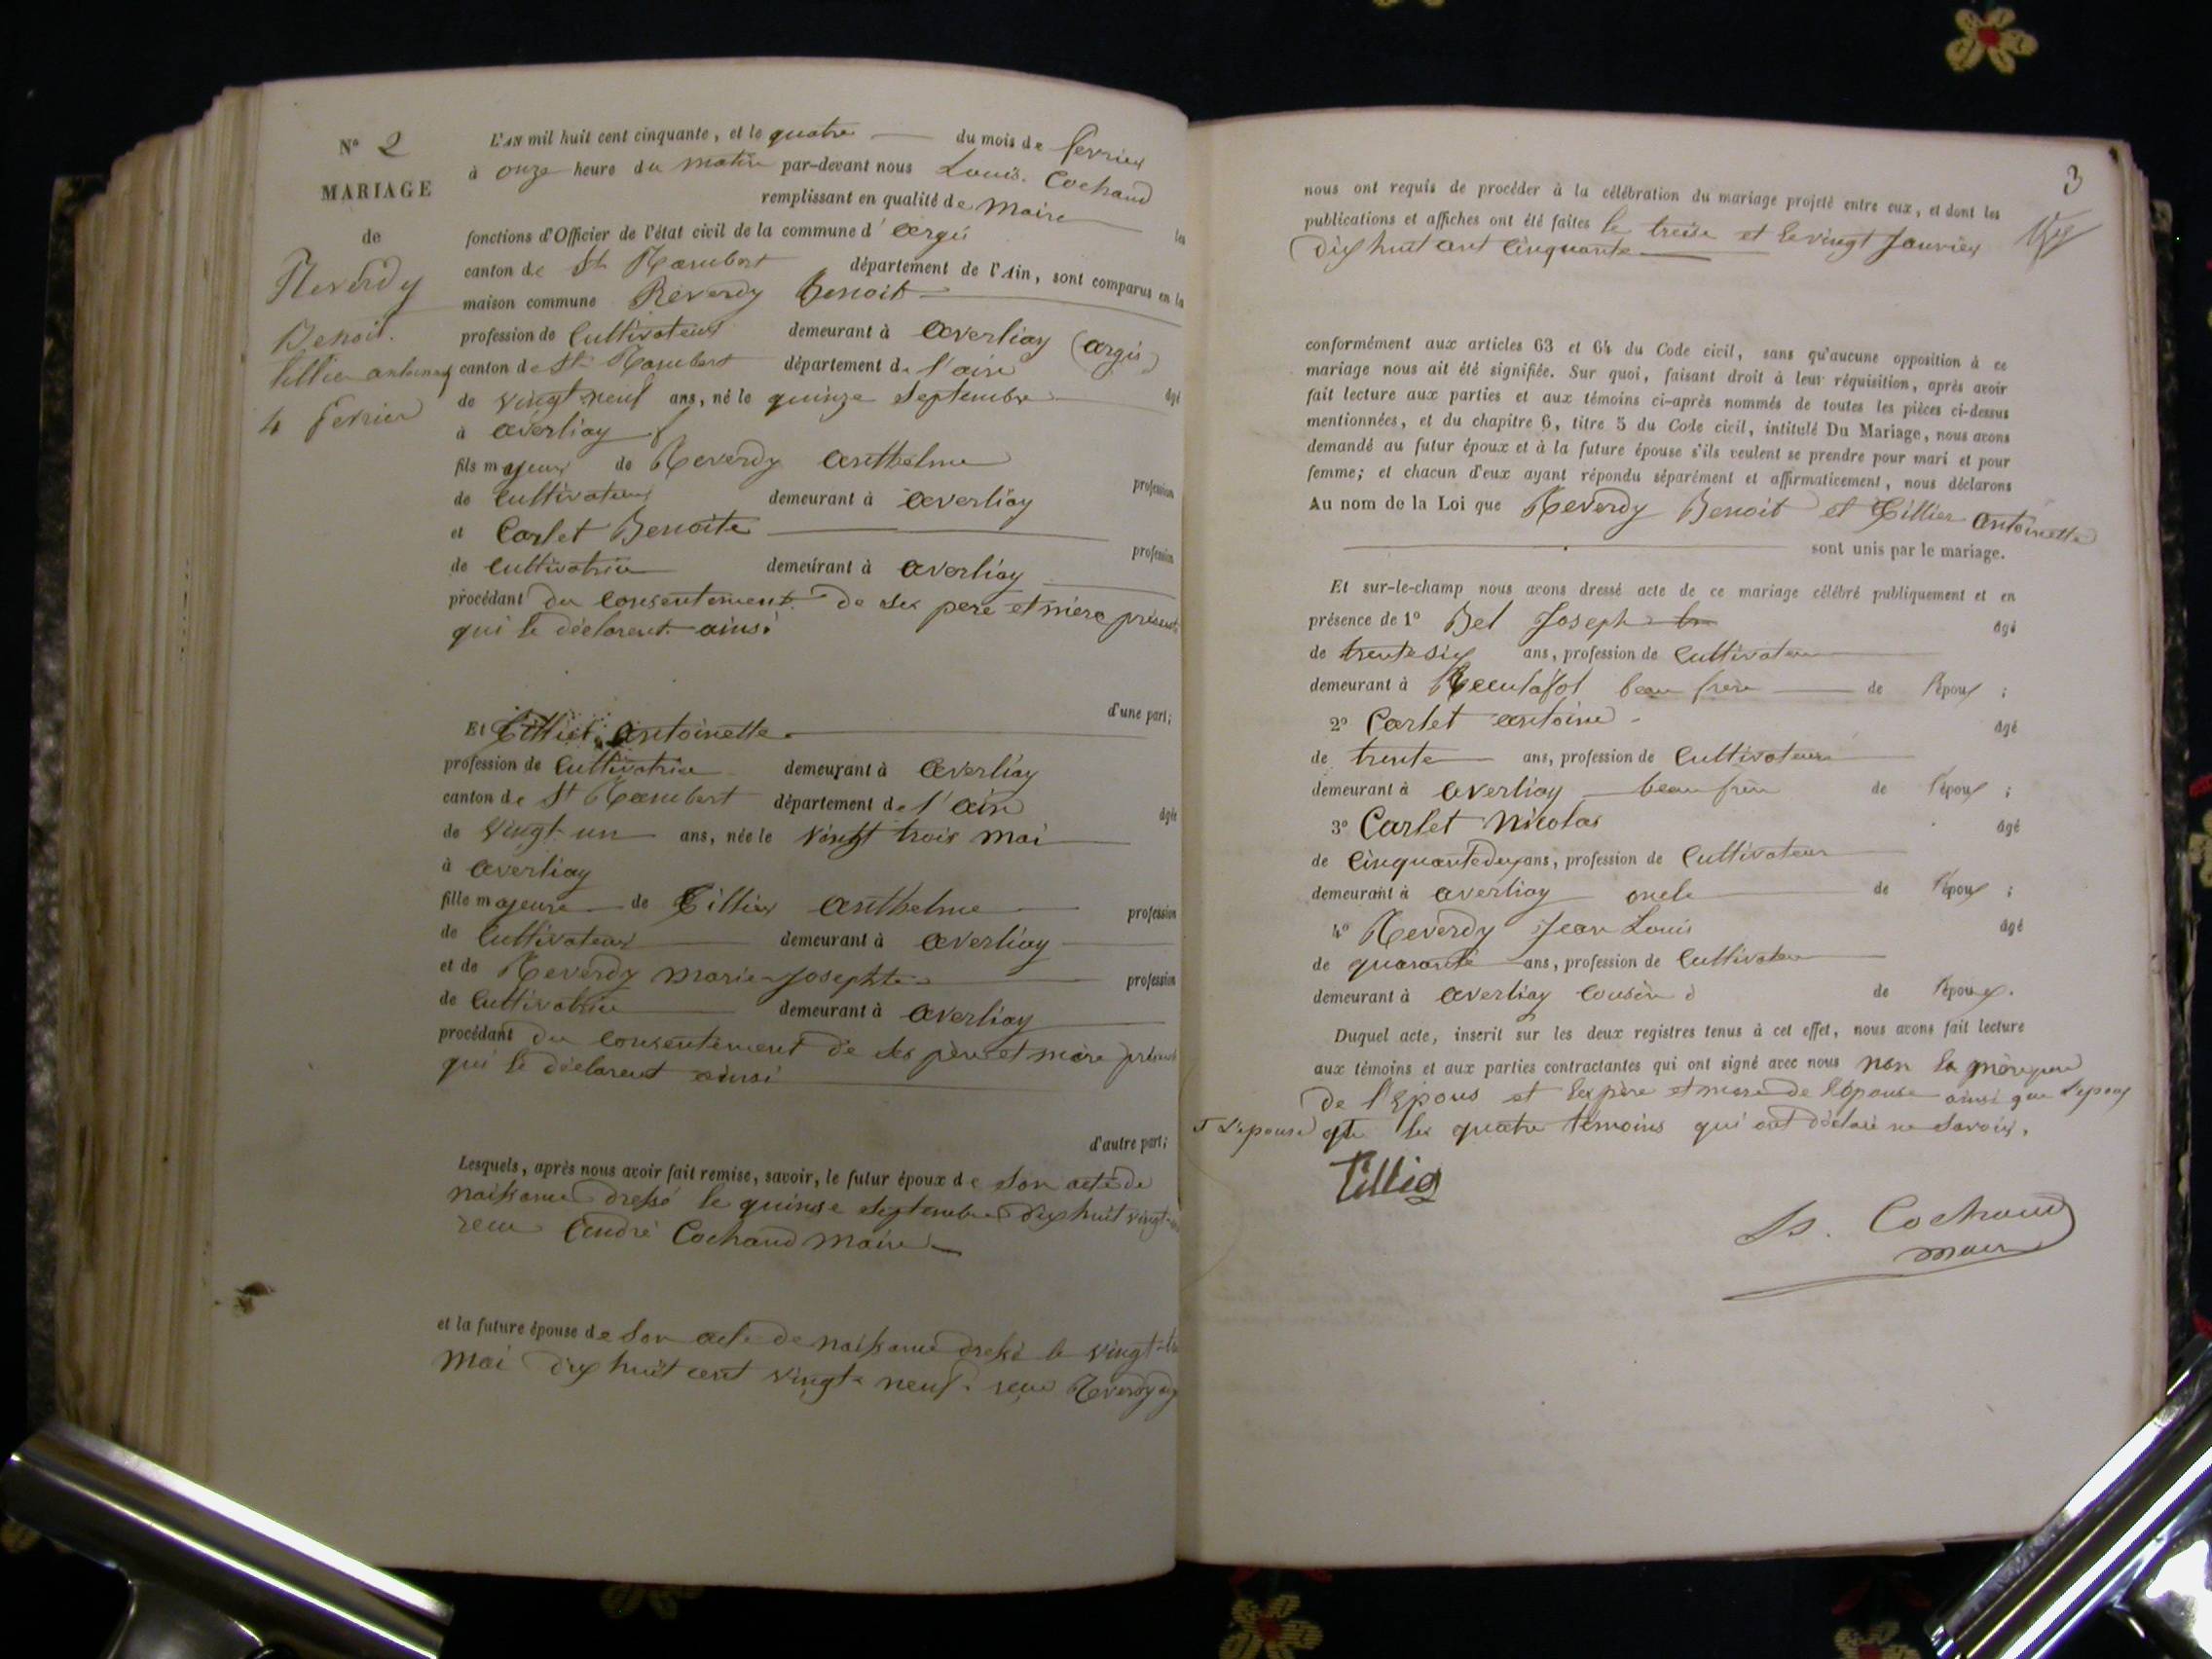 N° 2
MARIAGE
de
Reverdy
Benoit.
Tillier antoinette
4 fevrier
L'AN mil huit cent cinquante, et le quatre du mois de fevrier
à onze heure du matin par-devant nous Louis Cochand
remplissant en qualité de Maire les
fonctions d'Officier de l'état civil de la commune d'argis
canton de St Rambert département de l'Ain, sont comparus en la
maison commune Reverdy Benoit
profession de Cultivateur demeurant à averliay (argis)
canton de St Rambert département de l'ain
âgé
de vingt neuf ans, né le quinze Septembre
à averliay
fils majeur de Reverdy anthelme
profession
de Cultivateur demeurant à averliay
et Carlet Benoite
profession
de Cultivatrice demeurant à averliay
procédant du consentement de ses pere et mere présents
qui le déclarent ainsi
d'une part;
Et Tillier antoinette
profession de Cultivatrice demeurant à averliay
canton de St Rambert département de l'ain
âgée
de vingt un ans, née le vingt trois mai
à averliay
fille majeure de Tillier anthelme profession
de Cultivateur demeurant à averliay
et de Reverdy marie Josephte profession
de Cultivatrice demeurant à averliay
procédant du consentement de ses père et mère présents
qui le déclarent ainsi
d'autre part;
Lesquels, après nous avoir fait remise, savoir, le futur époux de son acte de
naissance dressé le quinze Septembre dix huit vingt
recu André Cochand maire
et la future épouse de son acte de naissance dressé le vingt
mai dix huit cent vingt neuf. recu Reverdy
3
nous ont requis de procéder à la célébration du mariage projeté entre eux, et dont les
publications et affiches ont été faites le treise et le vingt Janvier
dix huit cent cinquante
conformément aux articles 63 et 64 du Code civil, sans qu'aucune opposition à ce
mariage nous ait été signifiée. Sur quoi, faisant droit à leur réquisition, après avoir
fait lecture aux parties et aux témoins ci-après nommés de toutes les pièces ci-dessus
mentionnées, et du chapitre 6, titre 5 du Code civil, intitulé Du Mariage, nous avons
demandé au futur époux et à la future épouse s'ils veulent se prendre pour mari et pour
femme; et chacun d'eux ayant répondu séparément et affirmativement, nous déclarons
Au nom de la Loi que Reverdy Benoit et Tillier Antoinette
sont unis par le mariage.
Et sur-le-champ nous avons dressé acte de ce mariage célébré publiquement et en
présence de 1° Bel Joseph âgé
de trente six ans, profession de Cultivateur
demeurant à Reculafol beau frère de l'époux ;
2° Carlet antoine âgé
de trente ans, profession de Cultivateur
demeurant à averliay beau frère de l'époux ;
3° Carlet Nicolas âgé
de cinquante deux ans, profession de Cultivateur
demeurant à averliay oncle de l'époux ;
4° Reverdy Jean Louis âgé
de quarante ans, profession de Cultivateur
demeurant à averliay cousin de l'époux.
Duquel acte, inscrit sur les deux registres tenus à cet effet, nous avons fait lecture
aux témoins et aux parties contractantes qui ont signé avec nous non la mère
de l'Epous et les père et mere de l'épouse ainsi que l'epoux
L'epouse les quatre témoins qui ont déclaré ne Savoir.
Tillier
Ls. Cochand
maire